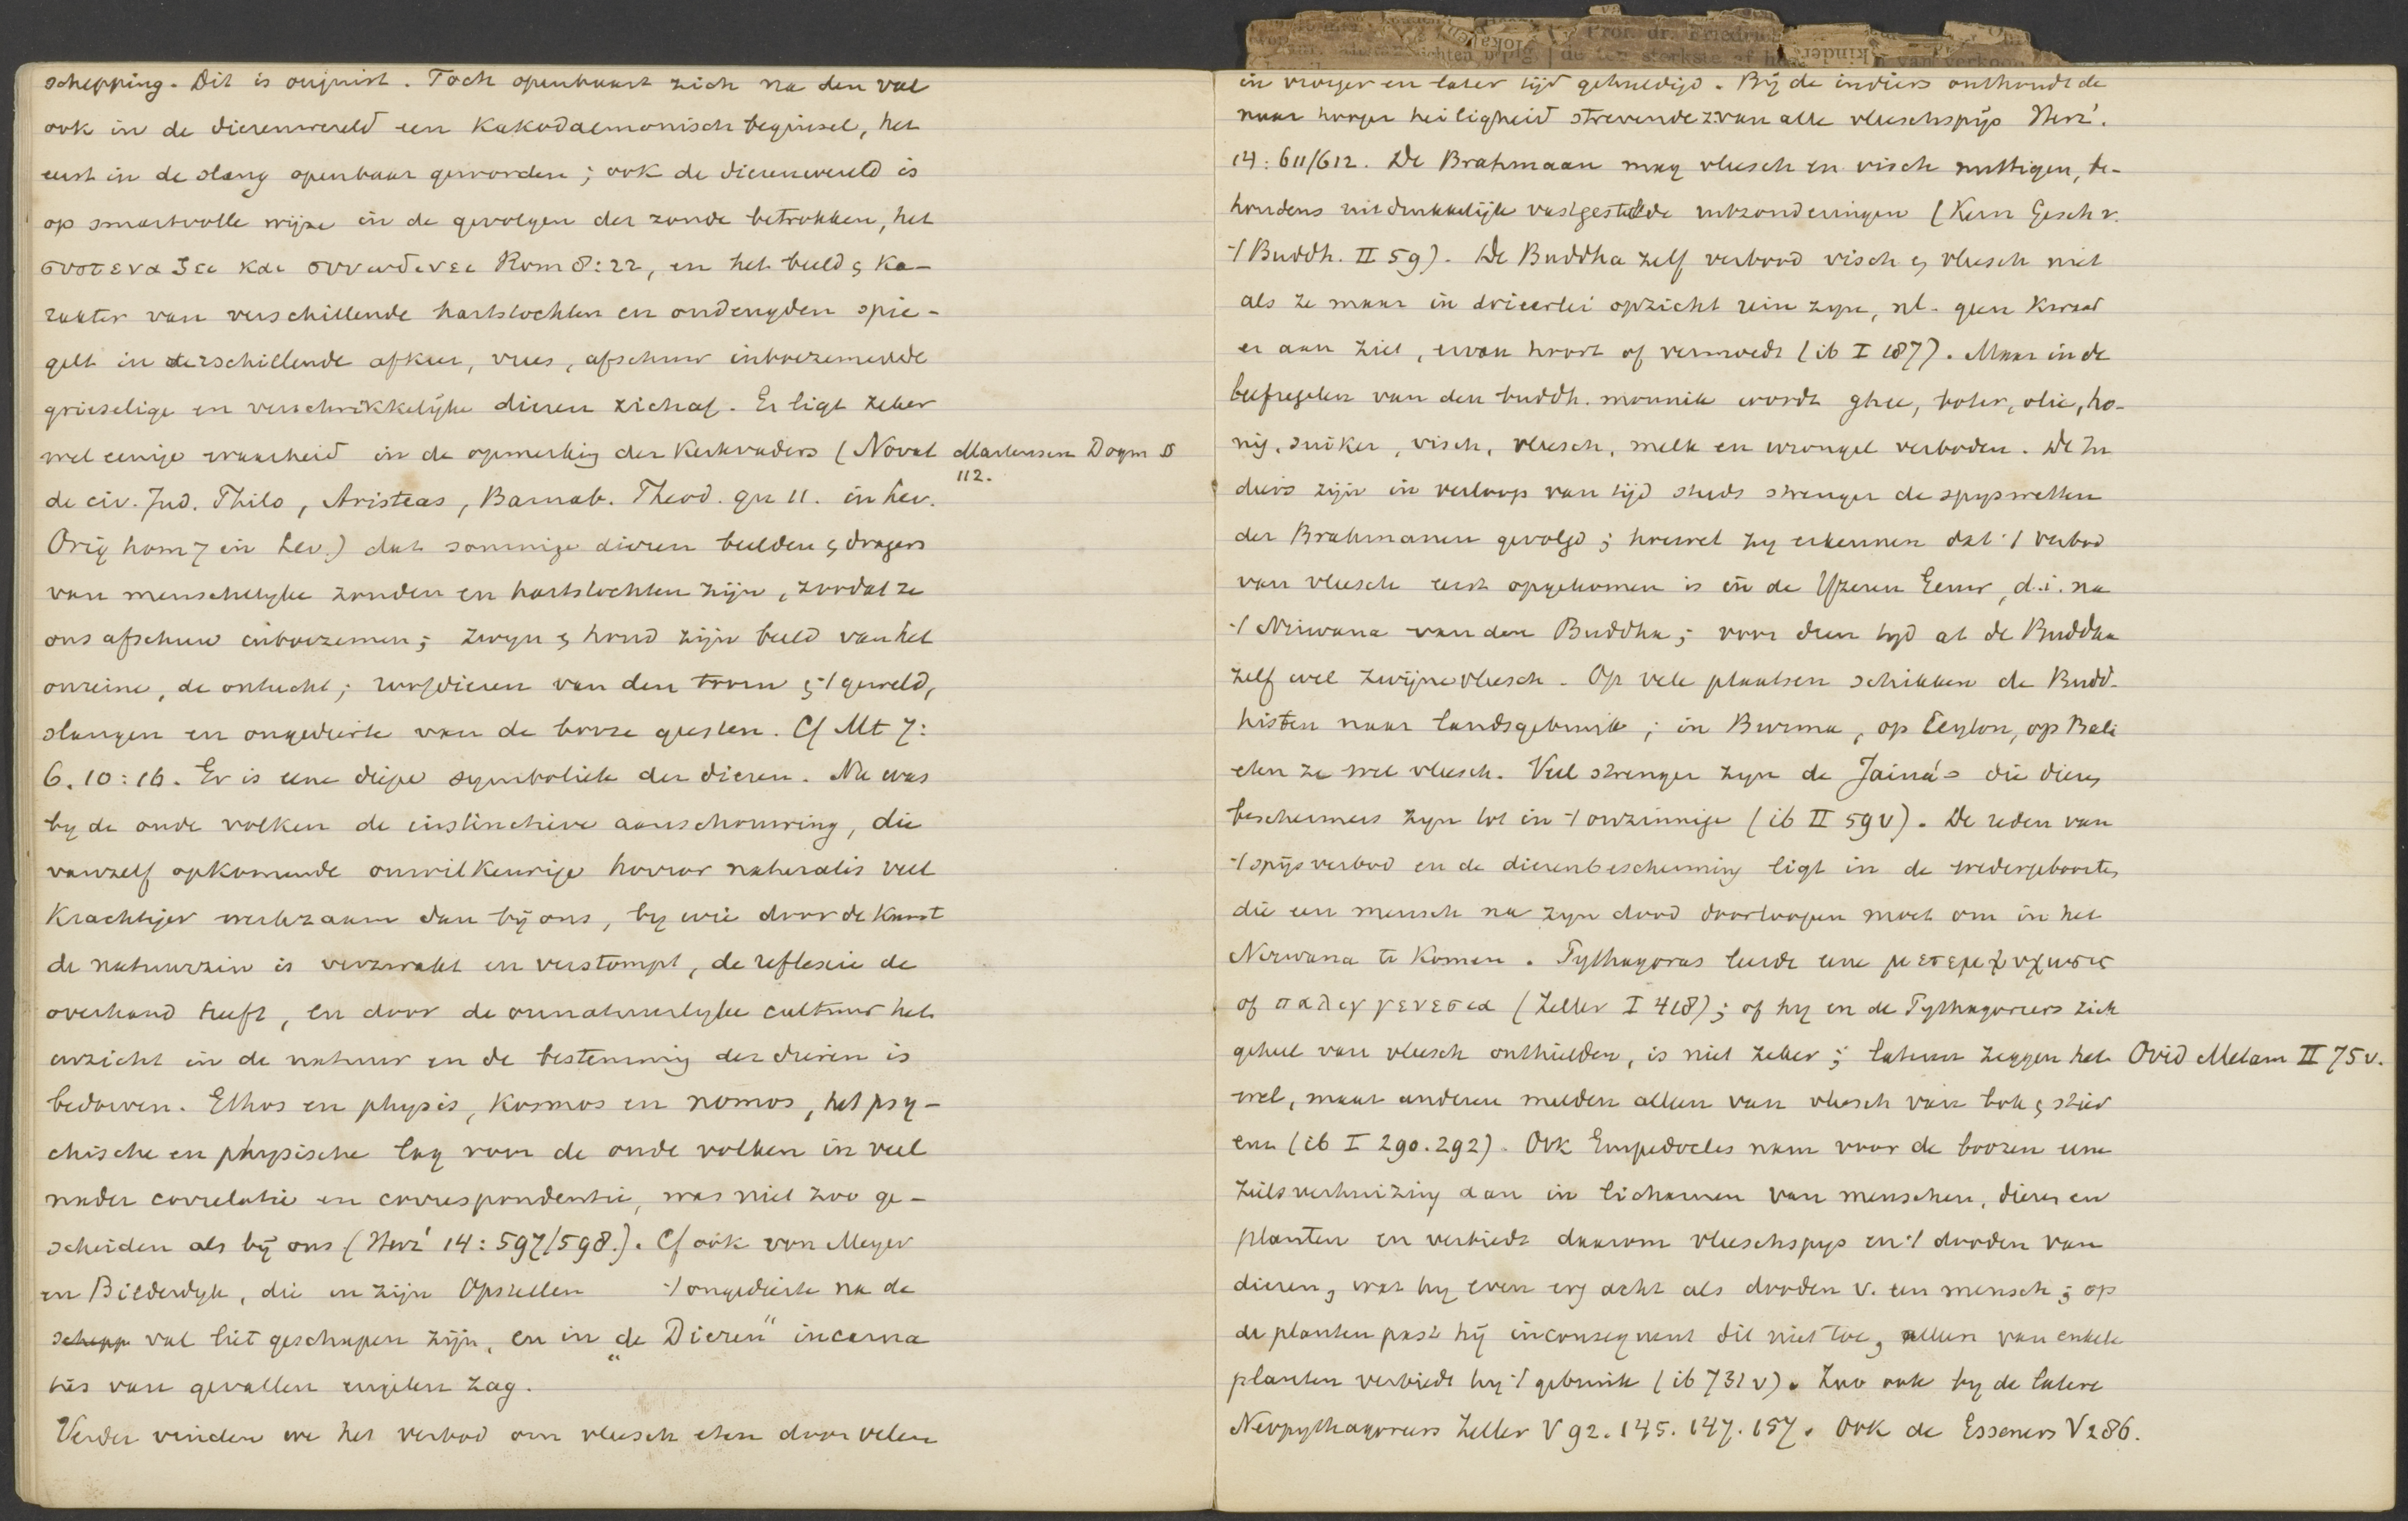 schepping. Dit is onjuist. Toch openbaart zich na den val
ook in de dierenwereld een kakodaemonisch beginsel, het
eerst in de slang openbaar geworden; ook de dierenwereld is
op smartvolle wijze in de gevolgen der zonde betrokken, het
συστεναζει και συνωδινει Rom 8:22, en het beeld & ka-
rakter van verschillende hartstochten en ondeugden spie-
gelt in verschillende afkeer, vrees, afschuw inboezemende
griezelige en verschrikkelijke dieren zich af. Er ligt zeker
wel eenige waarheid in de opmerking der Kerkvaders (Novat
Martensen Dogm §
112.
de cib. Jud. Philo, Aristeas, Barnab. Theod. qu 11. in Lev.
Orig hom 7 in Lev.) dat sommige dieren beelden & dragers
van menschelyke zonden en hartstochten zijn, zoodat ze
ons afschuw inboezemen; zwyn & hond zijn beeld van het
onreine, de ontucht; roofdieren van den toorn & 't geweld,
slangen en ongedierte van de booze geesten. Cf Mt 7:
6. 10:16. Er is eene diepe symboliek der dieren. Nu was
by de oude volken de instinctieve aanschouwing, die
vanzelf opkomende onwillkeurige horror naturalis veel
krachtiger werkzaam dan bij ons, by wie door de kunst
de natuurzin is verzwakt en verstompt, de reflexie de
overhand heeft, en door de onnatuurlyke cultuur het
inzicht in de natuur en de bestemming der dieren is
bedorven. Ethos en physis, kosmos en nomos, het psy-
chische en physische lag voor de oude volken in veel
nader correlatie en correspondentie, was niet zoo ge-
scheiden als bij ons (Herz' 14:597/598.). Cf ook von Meyer
en Bilderdyk, die in zijn Opstellen 't ongedierte na de
schepp val liet geschapen zijn, en in „de Dieren" incarna
ties van gevallen engelen zag.
Verder vinden we het verbod om vleesch eten door velen
in vroeger en later tijd gehuldigd. Bij de indiers onthoudt de
naar hooger heiligheid strevende z. van alle vleeschspijs Herz'.
14:611/612. De Brahmaan mag vleesch en visch nuttigen, be-
houdens uitdrukkelijk vastgestelde uitzonderingen (Kern Gesch v.
't Buddh. II 59). De Buddha zelf verbood visch & vleesch niet
als ze maar in drieerlei opzicht rein zyn, nl. geen kwaad
er aan ziet, ervan hoort of vermoedt (ib I 187). Maar in de
leefregelen van den buddh. monnik wordt ghee, boter, olie, ho-
nig, suiker, visch, vleesch, melk en wrongel verboden. De In
diers zijn in verloop van tijd steeds strenger de spyswetten
der Brahmanen gevolgd; hoewel zy erkennen dat 't verbod
van vleesch eerst opgekomen is in de Yzeren Eeuw, d.i. na
't Nirwana van den Buddha; voor dien tyd at de Buddha
zelf wel zwijnevleesch. Op vele plaatsen schikken de Budd-
histen naar landsgebruik; in Burma, op Ceylon, op Bali
eten ze wel vleesch. Veel strenger zyn de Jaina's die dieren
beschermers zyn tot in 't onzinnige (ib II 59v). De reden van
't spijsverbod en de dierenbescherming ligt in de wedergeboorten
die een mensch na zyn dood doorloopen moet om in het
Nirwana te komen. Pythagoras leerde eene μετεμψυχωσις
of παλιγγενεσια (Zeller I 418); of hy en de Pythagoreers zich
geheel van vleesch onthielden, is niet zeker; lateren zeggen het
Ovid Metam II 75v.
wel, maar anderen melden alleen van vleesch van bok & stier
enz (ib I 290.292). Ook Empedocles nam voor de boozen eene
zielsverhuizing aan in lichamen van menschen, dieren en
planten en verbiedt daarom vleeschspys en 't dooden van
dieren, wat hy even erg acht als dooden v. een mensch; op
de planten past hij inconsequent dit niet toe, alleen van enkele
planten verbiedt hy 't gebruik (ib 731v). Zoo ook by de latere
Neopythagoreers Zeller V 92. 145. 147. 157. Ook de Esseners V 286.